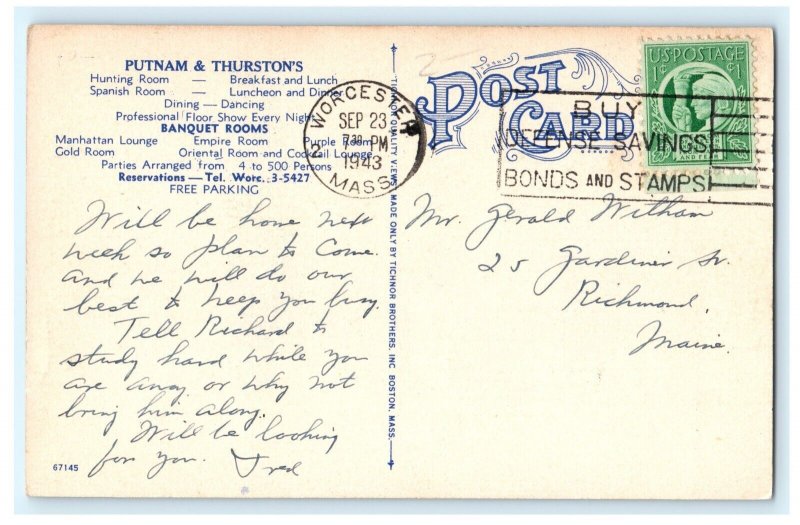 PUTNAM & THURSTON'S
Hunting Room — Breakfast and Lunch
Spanish Room — Luncheon and Dinner
Dining — Dancing
Professional Floor Show Every Night
BANQUET ROOMS
Manhattan Lounge Empire Room Purple Room
Gold Room Oriental Room and Cocktail Lounge
Parties Arranged from 4 to 500 Persons
Reservations — Tel. Worc. 3-5427
FREE PARKING
Will be home next
week so plan to come.
and we will do our
best to keep you busy.
Tell Richard to
study hard while you
are away or why not
bring him along.
Will be looking
for you. Fred
67145
QUALITY VIEWS MADE ONLY BY TICHNOR BROTHERS, INC. BOSTON, MASS.
POST
CARD
WORCESTER
SEP 23
7 30 PM
1943
MASS.
BUY
DEFENSE SAVINGS
BONDS AND STAMPS
U.S. POSTAGE
1¢ 1¢
Mr. Gerald Witham
25 Gardiner St.
Richmond,
Maine.